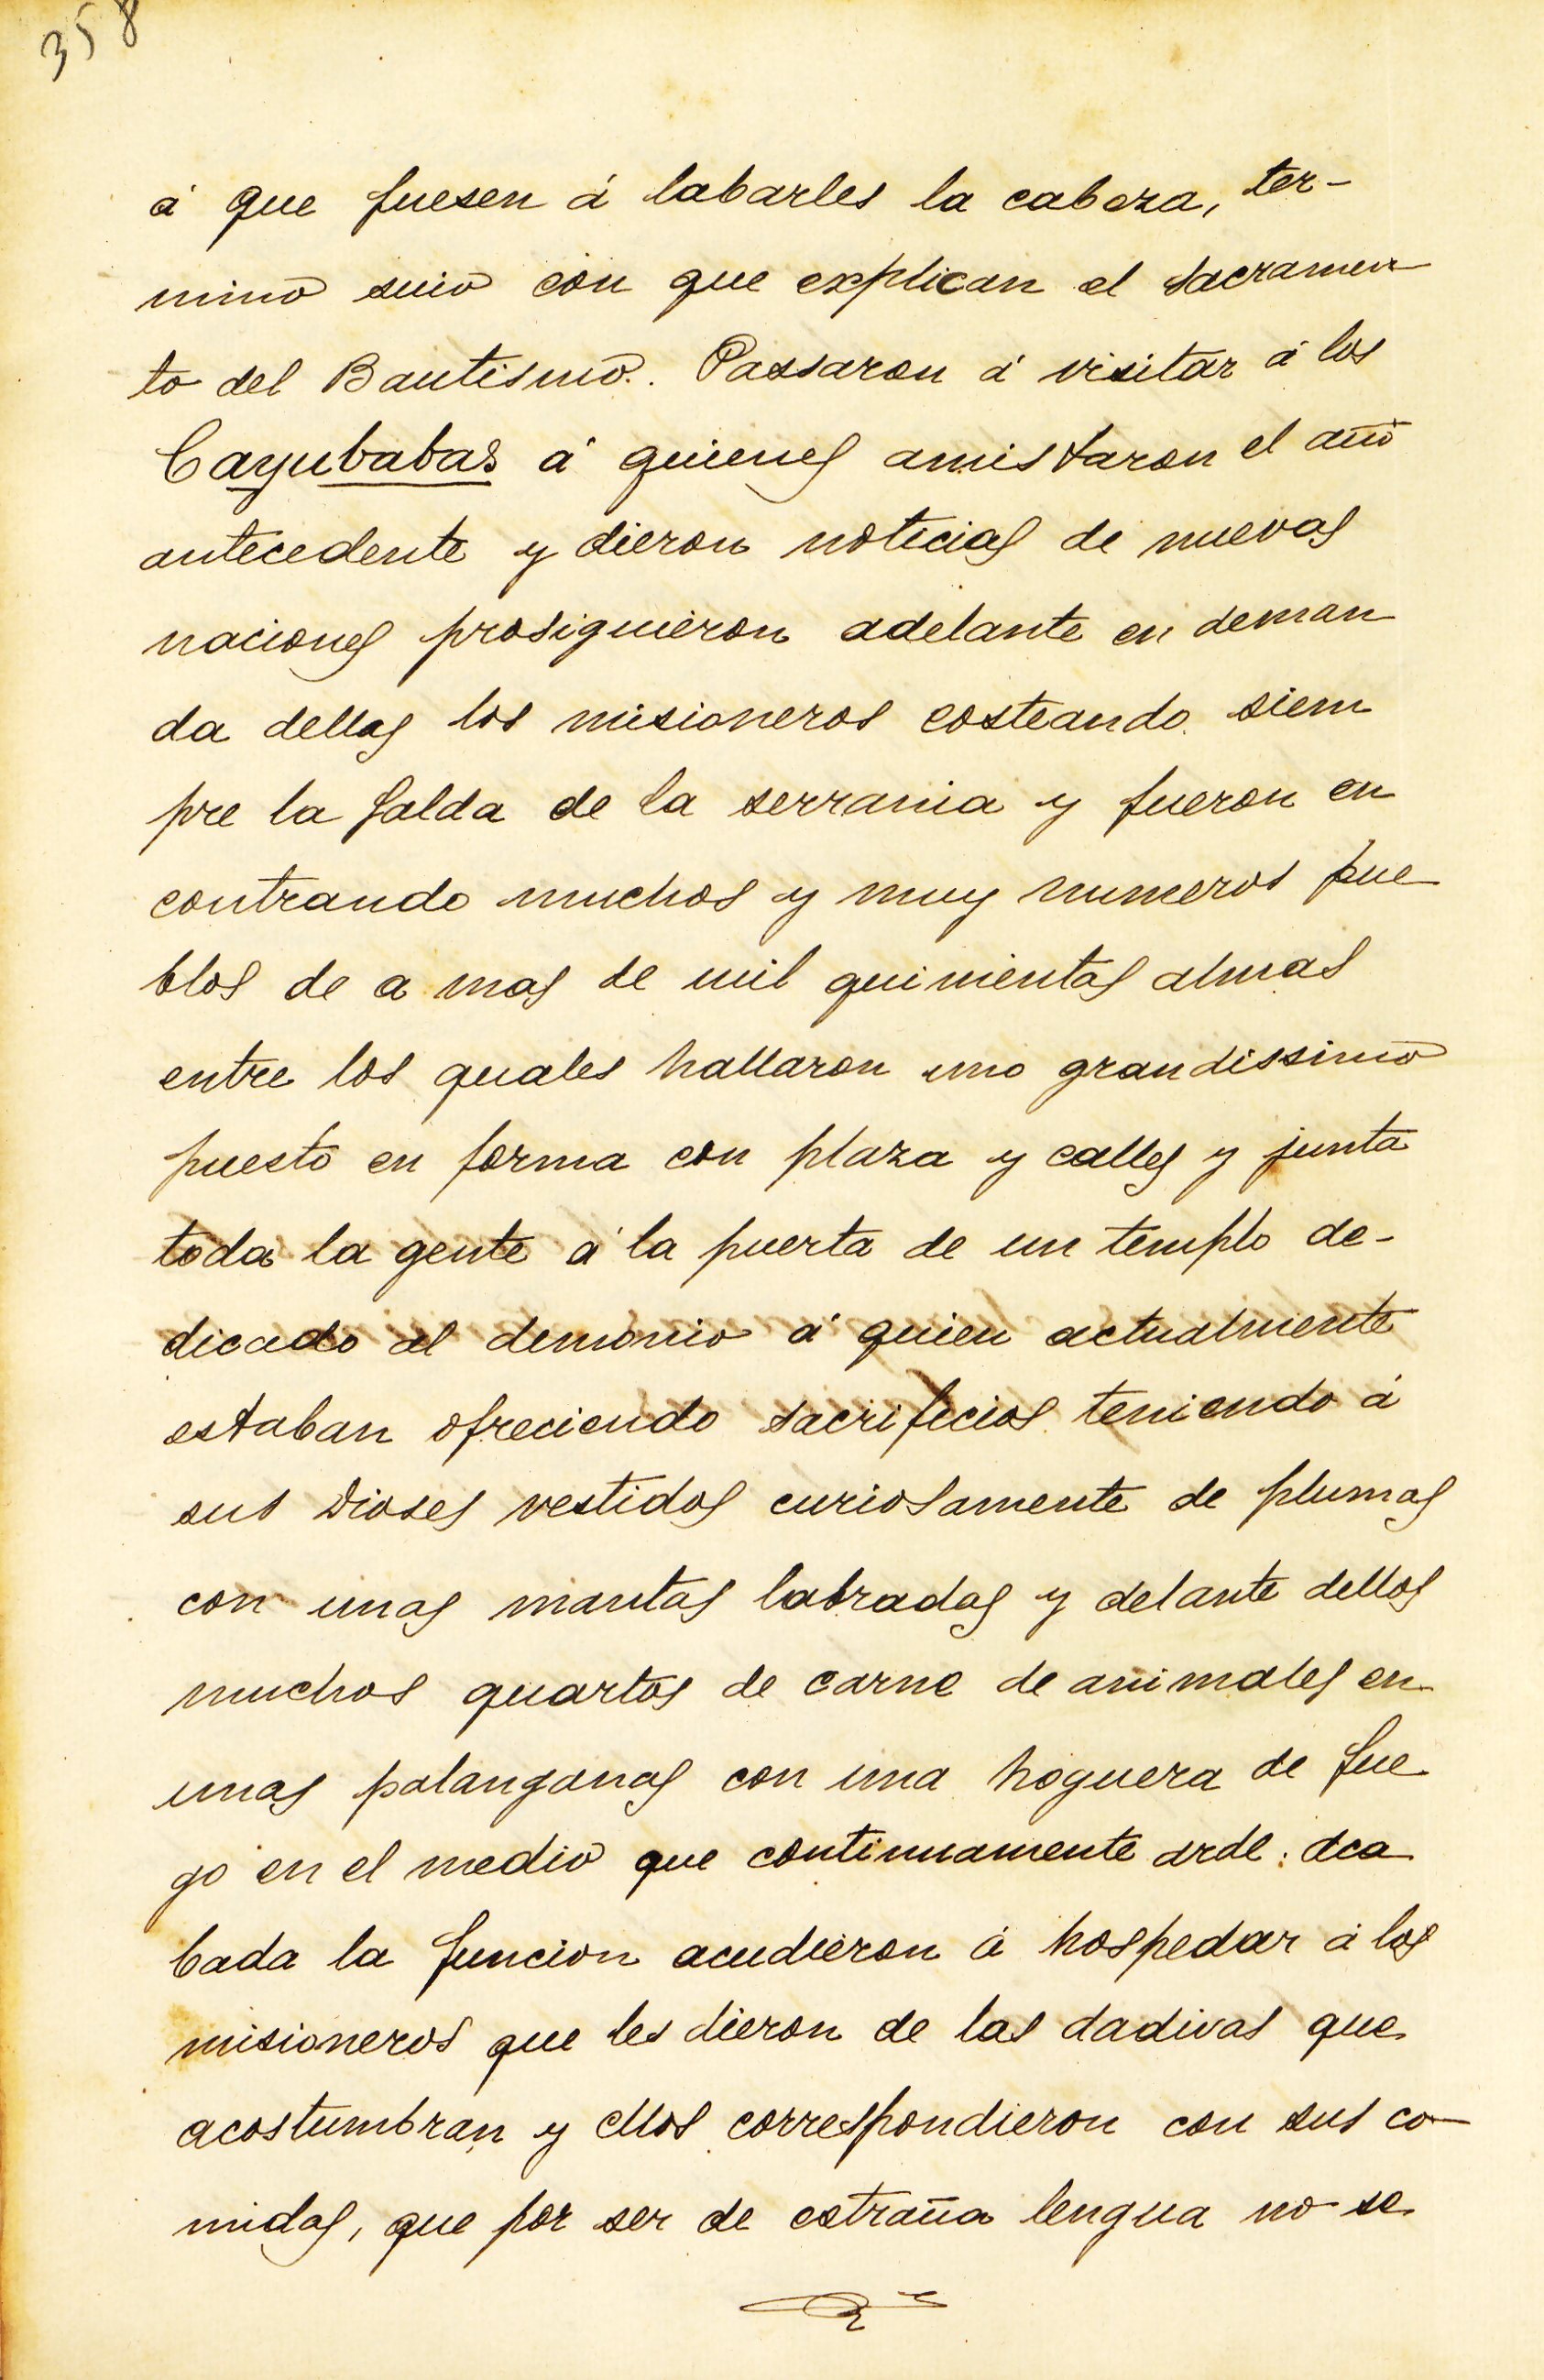 358
á que fuesen á labarles la cabeza, ter-
mino suio con que explican el sacramen
to del Bautismo. Passaron á visitar á los
Cayubabas á quienes amistaron el año
antecedente y dieron noticias de nuevas
naciones prosiguieron adelante en deman
da dellas los misioneros costeando siem
pre la falda de la serrania y fueron en
contrando muchos y muy numeros pue
blos de a mas de mil quinientas almas
entre los quales hallaron uno grandissimo
puesto en forma con plaza y calles y junta
toda la gente á la puerta de un templo de-
dicado al demonio á quien actualmente
estaban ofreciendo sacrificios teniendo á
sus Dioses vestidos curiosamente de plumas
con unas mantas labradas y delante dellos
muchos quartos de carne de animales en
unas palanganas con una hoguera de fue
go en el medio que continuamente arde: aca
bada la funcion acudieron á hospedar á los
misioneros que les dieron de las dadivas que
acostumbran y ellos correspondieron con sus co-
midas, que por ser de estraña lengua no se